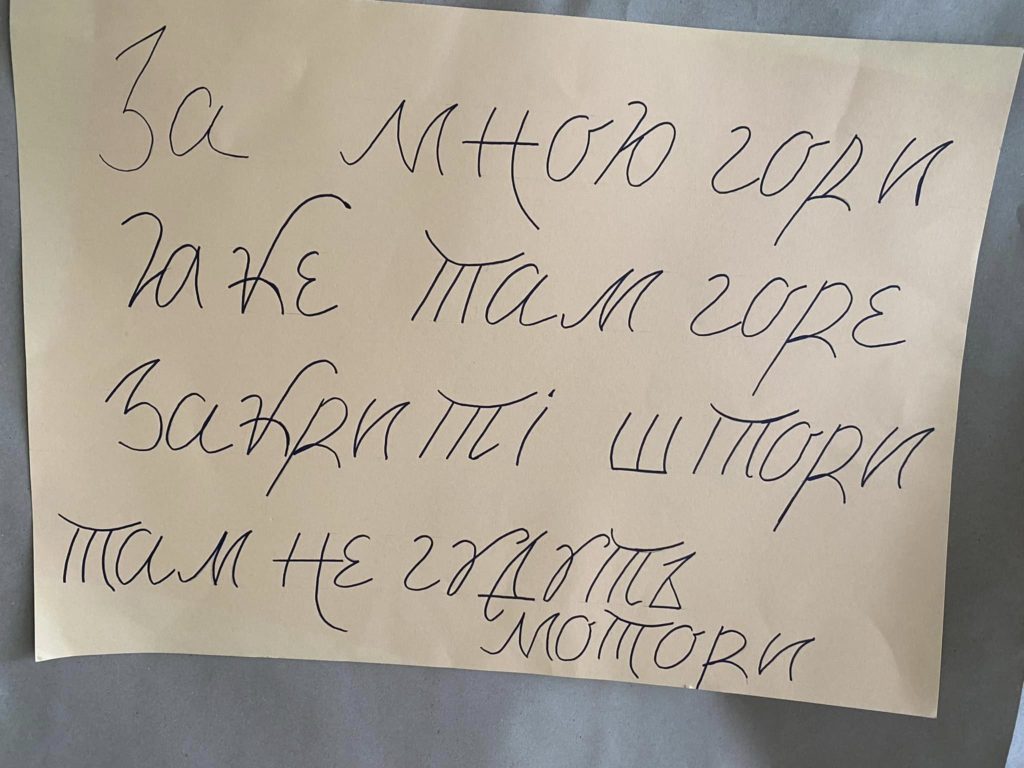 За мною гори
Таке там горе
Закриті штори
там не гудуть
мотори